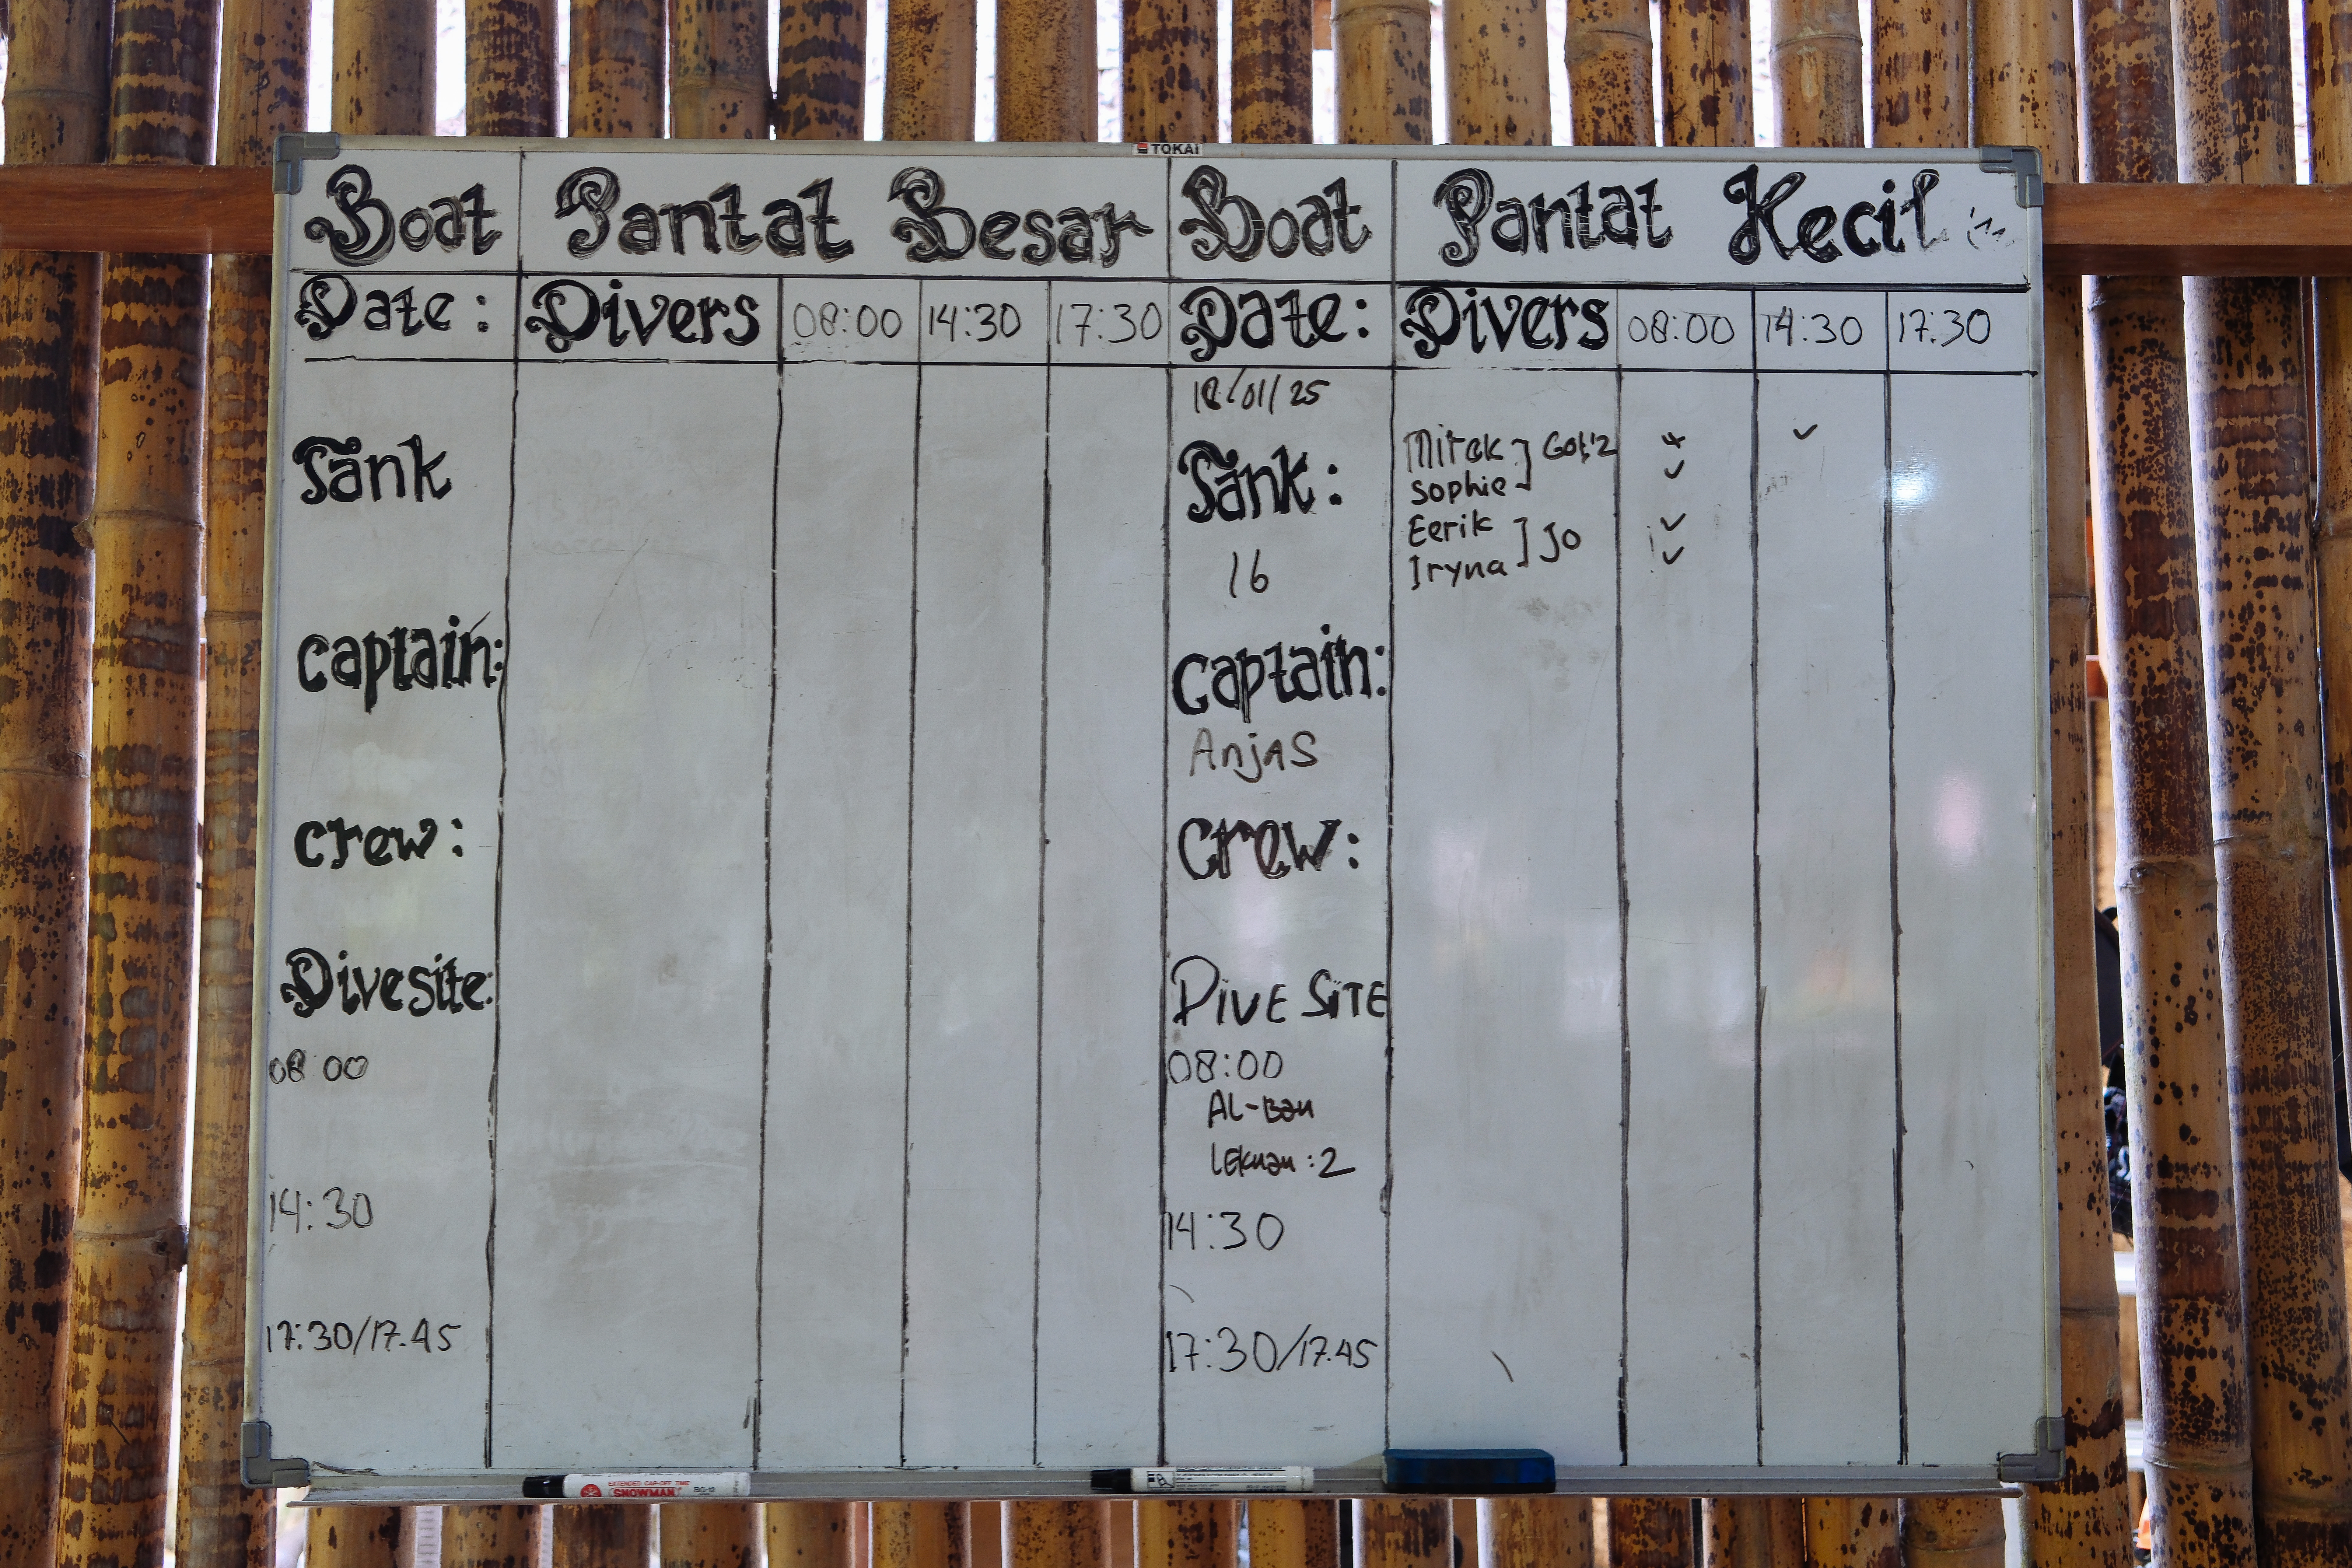 TOKAI
Boat Pantat Besar
Date: Divers 08:00 14:30 17:30
Tank
Captain:
Crew:
Divesite:
08 00
14:30
17:30/17.45
Boat Pantat Kecil
Date: Divers 08:00 14:30 17:30
18/01/25
Tank:
16
Captain:
Anjas
Crew:
DIVE SITE
08:00
AL-Bau
:2
14:30
17:30/17.45
Mirek ✓
Sophie ✓
Eerik ✓
] Jo
Iryna ✓
EXTENDED CAP-OFF TIME
SNOWMAN BG-12